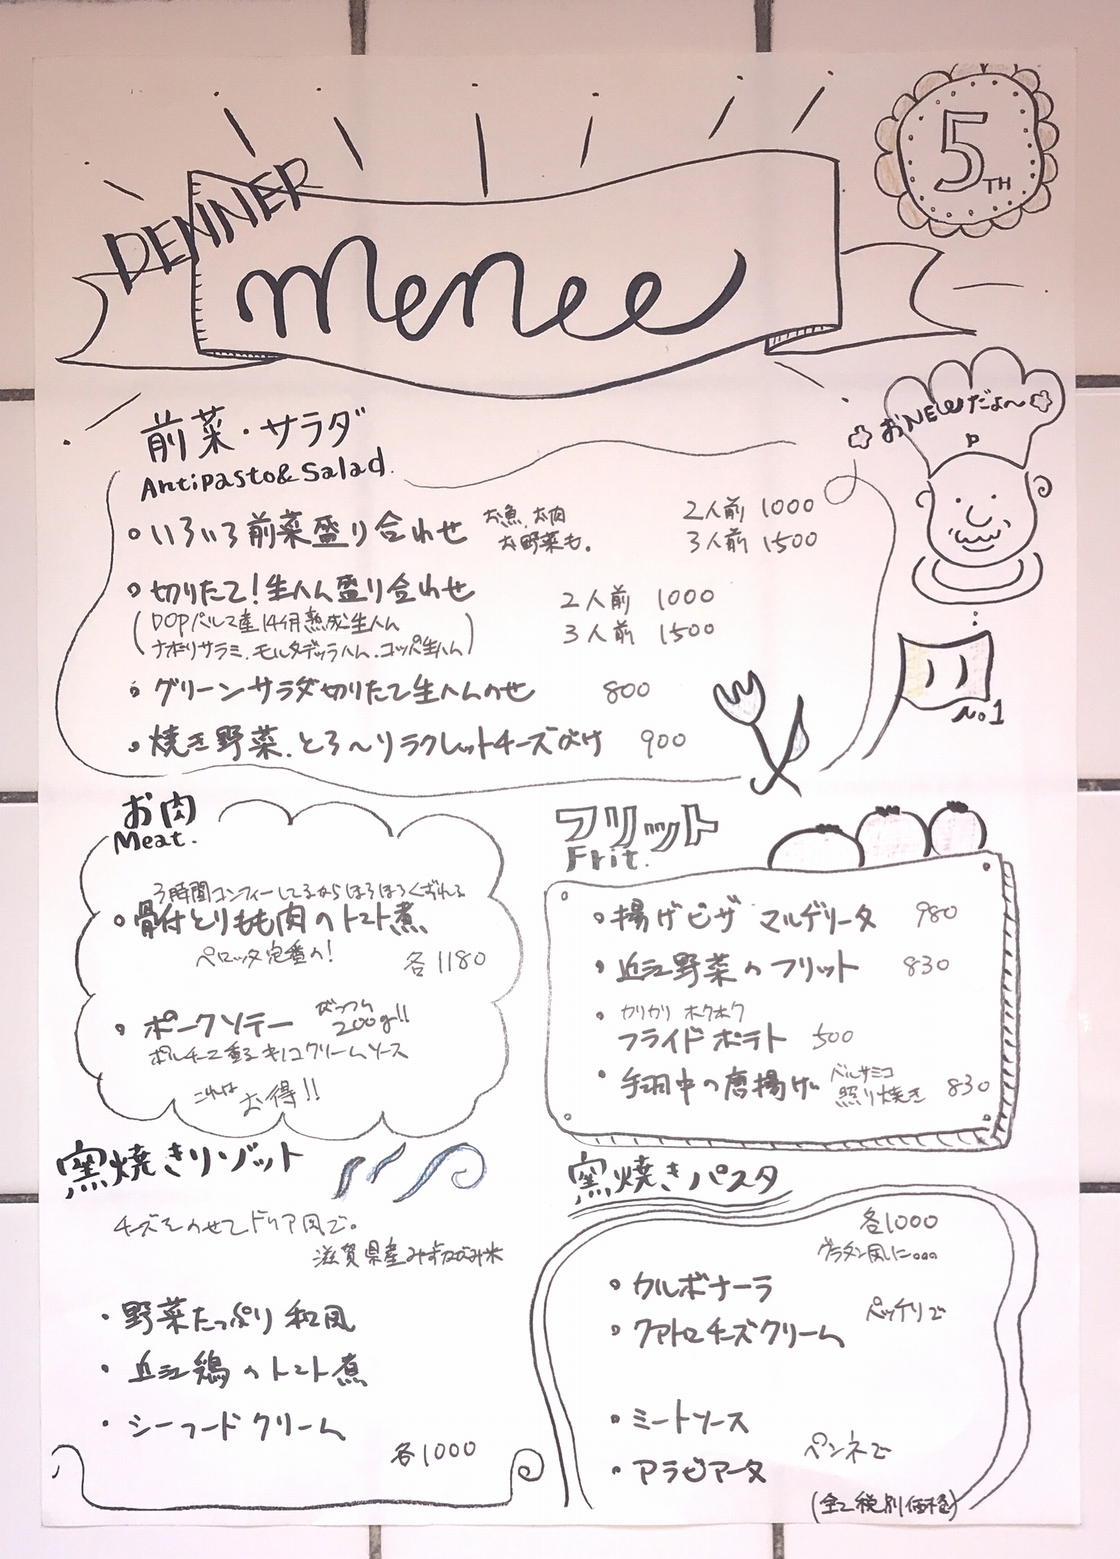 5TH
DENNER
menee
おNEWだよ〜
前菜・サラダ
Antipasto&Salad.
いろいろ前菜盛り合わせ お魚、お肉 お野菜も。 2人前 1000
3人前 1500
切りたて!生ハム盛り合わせ 2人前 1000
(DOPパルマ産14ヶ月熟成生ハム 3人前 1500
ナポリサラミ、モルタデッラハム、コッパ生ハム)
グリーンサラダ切りたて生ハムのせ 800
焼き野菜、とろ〜りラクレットチーズがけ 900
No1
お肉
Meat.
3時間コンフィーしてるからほろほろくずれる
骨付とりもも肉のトマト煮
ペロッタ定番の! 各1180
ポークソテー がっつり 200g!!
ポルチーニ香るキノコクリームソース
これは お得!!
フリット
Frit.
揚げピザ マルゲリータ 980
近江野菜のフリット 830
カリカリ ホクホク
フライドポテト 500
手羽中の唐揚げ バルサミコ 照り焼き 830
窯焼きリゾット
チーズをのせてドリア風で。
滋賀県産みずかがみ米
野菜たっぷり 和風
近江鶏のトマト煮
シーフードクリーム
各1000
窯焼きパスタ
各1000
グラタン風に...
カルボナーラ
ペッチリで
クアトロチーズクリーム
ミートソース
ペンネで
アラビアータ
(全て税別価格)